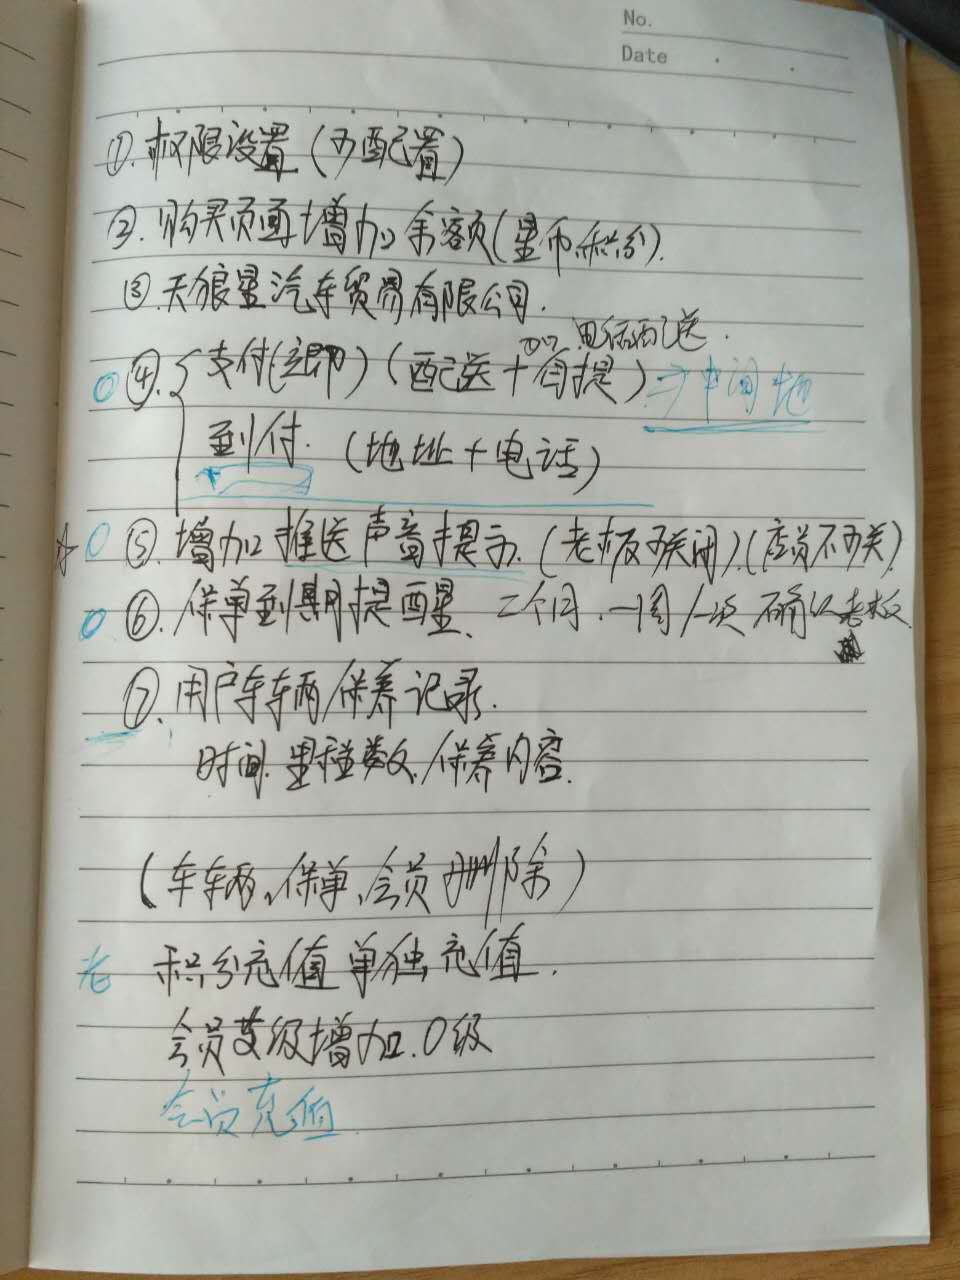 No.
Date
①.权限设置(可配置)
②.购买页面增加余额(星币.积分).
③天狼星汽车贸易有限公司.
配送.
④.{支付(立即)(配送+自提)→中间地
到付.(地址+电话)
☆○⑤.增加推送声音提示.(老板可关闭).(店员不可关)
○⑥.保单到期提醒.二个月.一周/一次 不确认老板
⑦.用户车辆保养记录.
时间.里程数.保养内容.
(车辆、保单、会员删除)
老 积分充值单独充值.
会员等级增加.0级
会员充值